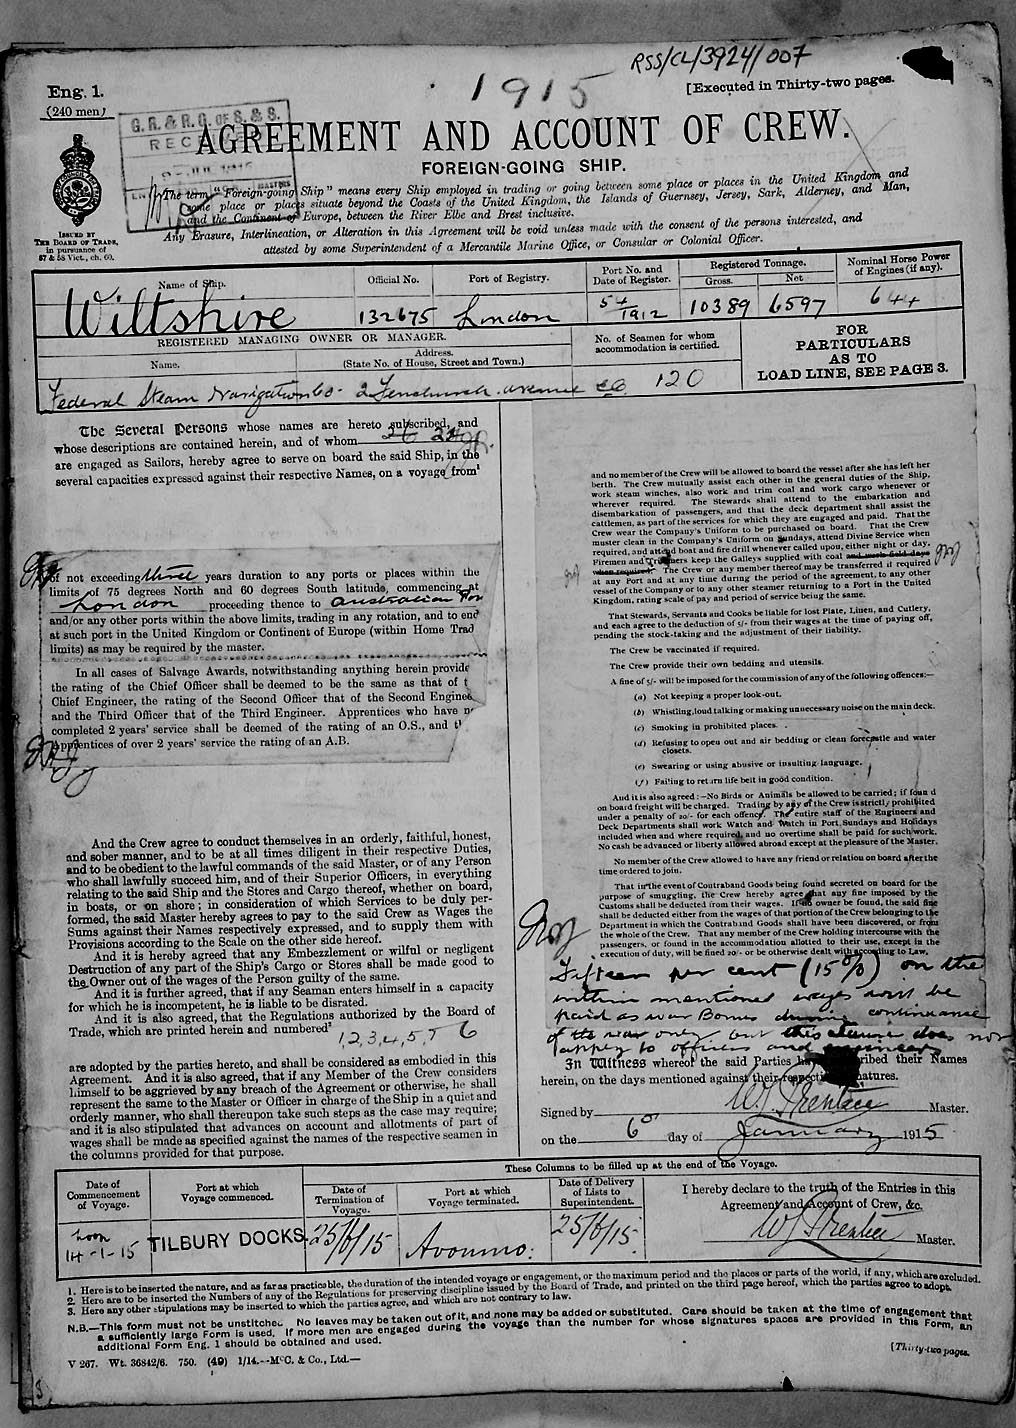 RSS/CL/3924/007
Eng. 1.
(240 men)
1915
[Executed in Thirty-two pages.
G. R. & R. G. OF S. & S.
AGREEMENT AND ACCOUNT OF CREW.
FOREIGN-GOING SHIP.
"The term "Foreign-going Ship" means every Ship employed in trading or going between some place or places in the United Kingdom and
some place or places situate beyond the Coasts of the United Kingdom, the Islands of Guernsey, Jersey, Sark, Alderney, and Man,
and the Continent of Europe, between the River Elbe and Brest inclusive.
Any Erasure, Interlineation, or Alteration in this Agreement will be void unless made with the consent of the persons interested, and
attested by some Superintendent of a Mercantile Marine Office, or Consular or Colonial Officer.
ISSUED BY
THE BOARD OF TRADE,
in pursuance of
57 & 58 Vict., ch. 60.
Name of Ship.
Official No.
Port of Registry.
Port No. and
Date of Register.
Registered Tonnage.
Gross.
Net
Nominal Horse Power
of Engines (if any).
Wiltshire
132675
London
54/1912
10389
6597
644
REGISTERED MANAGING OWNER OR MANAGER.
Name.
Address.
(State No. of House, Street and Town.)
No. of Seamen for whom
accommodation is certified.
FOR
PARTICULARS
AS TO
LOAD LINE, SEE PAGE 3.
Federal Steam Navigation Co. 2 Fenchurch Avenue EC
120
The Several Persons whose names are hereto subscribed, and
whose descriptions are contained herein, and of whom
are engaged as Sailors, hereby agree to serve on board the said Ship, in the
several capacities expressed against their respective Names, on a voyage from¹
of not exceeding three years duration to any ports or places within the
limits of 75 degrees North and 60 degrees South latitude, commencing at
London proceeding thence to Australian
and/or any other ports within the above limits, trading in any rotation, and to end
at such port in the United Kingdom or Continent of Europe (within Home Trad
limits) as may be required by the master.
In all cases of Salvage Awards, notwithstanding anything herein provide
the rating of the Chief Officer shall be deemed to be the same as that of t
Chief Engineer, the rating of the Second Officer that of the Second Enginee
and the Third Officer that of the Third Engineer. Apprentices who have n
completed 2 years' service shall be deemed of the rating of an O.S., and t
Apprentices of over 2 years' service the rating of an A.B.
And the Crew agree to conduct themselves in an orderly, faithful, honest,
and sober manner, and to be at all times diligent in their respective Duties,
and to be obedient to the lawful commands of the said Master, or of any Person
who shall lawfully succeed him, and of their Superior Officers, in everything
relating to the said Ship and the Stores and Cargo thereof, whether on board,
in boats, or on shore; in consideration of which Services to be duly per-
formed, the said Master hereby agrees to pay to the said Crew as Wages the
Sums against their Names respectively expressed, and to supply them with
Provisions according to the Scale on the other side hereof.
And it is hereby agreed that any Embezzlement or wilful or negligent
Destruction of any part of the Ship's Cargo or Stores shall be made good to
the Owner out of the Wages of the Person guilty of the same.
And it is further agreed, that if any Seaman enters himself in a capacity
for which he is incompetent, he is liable to be disrated.
And it is also agreed, that the Regulations authorized by the Board of
Trade, which are printed herein and numbered²
1, 2, 3, 4, 5, & 6
are adopted by the parties hereto, and shall be considered as embodied in this
Agreement. And it is also agreed, that if any Member of the Crew considers
himself to be aggrieved by any breach of the Agreement or otherwise, he shall
represent the same to the Master or Officer in charge of the Ship in a quiet and
orderly manner, who shall thereupon take such steps as the case may require;
and it is also stipulated that advances on account and allotments of part of
wages shall be made as specified against the names of the respective seamen in
the columns provided for that purpose.
and no member of the Crew will be allowed to board the vessel after she has left her
berth. The Crew mutually assist each other in the general duties of the Ship,
work steam winches, also work and trim coal and work cargo whenever or
wherever required. The Stewards shall attend to the embarkation and
disembarkation of passengers, and that the deck department shall assist the
cattlemen, as part of the services for which they are engaged and paid. That the
Crew wear the Company's Uniform to be purchased on board. That the Crew
muster clean in the Company's Uniform on Sundays, attend Divine Service when
required, and attend boat and fire drill whenever called upon, either night or day.
Firemen and Trimmers keep the Galleys supplied with coal and work field days
when required. The Crew or any member hereof may be transferred if required
at any Port and at any time during the period of the agreement, to any other
vessel of the Company or to any other steamer returning to a Port in the United
Kingdom, rating scale of pay and period of service being the same.
That Stewards, Servants and Cooks be liable for lost Plate, Linen, and Cutlery,
and each agree to the deduction of 5/- from their wages at the time of paying off,
pending the stock-taking and the adjustment of their liability.
The Crew be vaccinated if required.
The Crew provide their own bedding and utensils.
A fine of 5/- will be imposed for the commission of any of the following offences:—
(a) Not keeping a proper look-out.
(b) Whistling, loud talking or making unnecessary noise on the main deck.
(c) Smoking in prohibited places.
(d) Refusing to open out and air bedding or clean forecastle and water
closets.
(e) Swearing or using abusive or insulting language.
(f) Failing to return life belt in good condition.
And it is also agreed:—No Birds or Animals be allowed to be carried; if found
on board freight will be charged. Trading by any of the Crew is strictly prohibited
under a penalty of 20/- for each offence. The entire staff of the Engineers and
Deck Departments shall work Watch and Watch in Port, Sundays and Holidays
included when and where required, and no overtime shall be paid for such work.
No cash be advanced or liberty allowed abroad except at the pleasure of the Master.
No member of the Crew allowed to have any friend or relation on board after the
time ordered to join.
That in the event of Contraband Goods being found secreted on board for the
purpose of smuggling, the Crew hereby agree that any fine imposed by the
Customs shall be deducted from their wages. If no owner be found, the said fine
shall be deducted either from the wages of that portion of the Crew belonging to the
Department in which the Contraband Goods shall have been discovered, or from
the whole of the Crew. That any member of the Crew holding intercourse with the
passengers, or found in the accommodation allotted to their use, except in the
execution of duty, will be fined 20/- or be otherwise dealt with according to Law.
Fifteen per cent (15%) on the
within mentioned wages will be
paid as war Bonus during continuance
of the war only, but this clause does not
apply to officers and
In Witness whereof the said Parties have subscribed their Names
herein, on the days mentioned against their respective Signatures.
Signed by W. J. Prentice Master.
on the 6th day of January 1915
These Columns to be filled up at the end of the Voyage.
Date of
Commencement
of Voyage.
Port at which
Voyage commenced.
Date of
Termination of
Voyage.
Port at which
Voyage terminated.
Date of Delivery
of Lists to
Superintendent.
I hereby declare to the truth of the Entries in this
Agreement and Account of Crew, &c.
14-1-15
TILBURY DOCKS.
25/6/15
Avonmo:
25/6/15
W J Prentice Master.
1. Here is to be inserted the nature, and as far as practicable, the duration of the intended voyage or engagement, or the maximum period and the places or parts of the world, if any, which are excluded.
2. Here are to be inserted the Numbers of any of the Regulations for preserving discipline issued by the Board of Trade, and printed on the third page hereof, which the parties agree to adopt.
3. Here any other stipulations may be inserted to which the parties agree, and which are not contrary to law.
N.B.—This form must not be unstitched. No leaves may be taken out of it, and none may be added or substituted. Care should be taken at the time of engagement that
a sufficiently large Form is used. If more men are engaged during the voyage than the number for whose signatures spaces are provided in this Form, an
additional Form Eng. 1 should be obtained and used.
V 267. Wt. 36842/6. 750. (49) 1/14.—McC. & Co., Ltd.—
[Thirty-two pages.
3